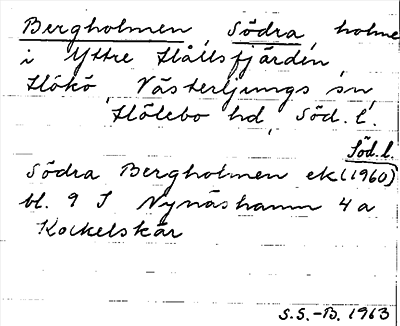 Bergholmen, Södra, holme
i Yttre Hållsfjärden,
Hökö, Västerljungs sn,
Hölebo hd, Söd. l.
Söd. l.
Södra Bergholmen ek (1960)
bl. 9 I Nynäshamn 4 a
Kockelskär
S.S.-B. 1963